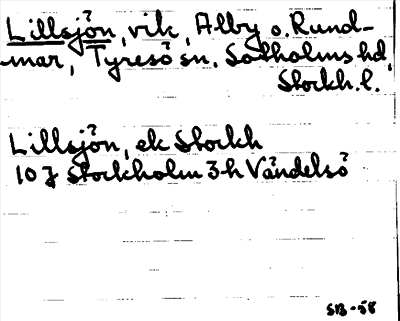 Lillsjön, vik, Alby o. Rund-
mar, Tyresö sn, Sotholms hd,
Stockh. l.
Lillsjön, ek Stockh
10 J Stockholm 3h Vändelsö
SB-58